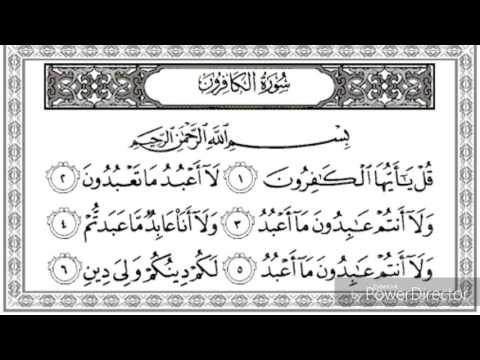 سُورَةُ الكَافِرُونَ
بِسْمِ اللَّهِ الرَّحْمَٰنِ الرَّحِيمِ
قُلْ يَٰٓأَيُّهَا ٱلْكَٰفِرُونَ ١ لَآ أَعْبُدُ مَا تَعْبُدُونَ ٢
وَلَآ أَنتُمْ عَٰبِدُونَ مَآ أَعْبُدُ ٣ وَلَآ أَنَا۠ عَابِدٌ مَّا عَبَدتُّمْ ٤
وَلَآ أَنتُمْ عَٰبِدُونَ مَآ أَعْبُدُ ٥ لَكُمْ دِينُكُمْ وَلِىَ دِينِ ٦
by PowerDirector